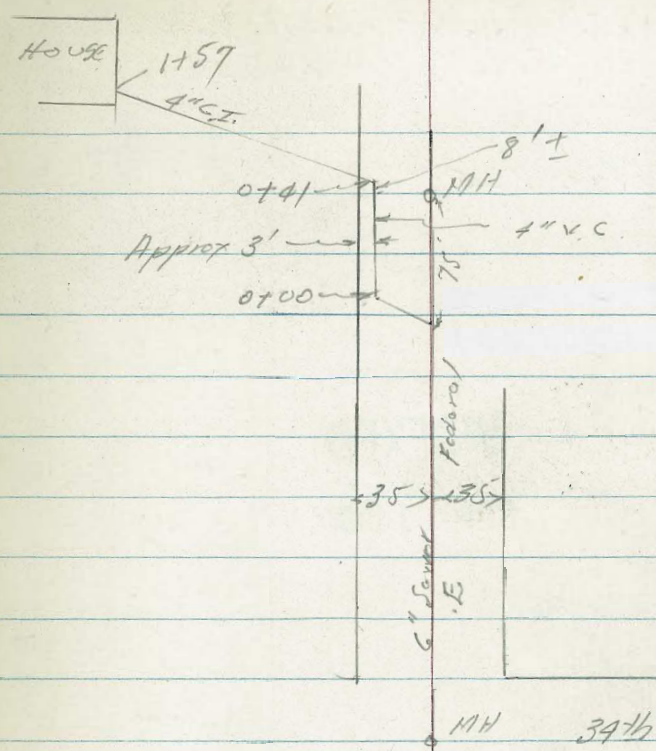 House
1+57
4" C.I.
8' ±
0+41
MH
4" V.C.
Approx 3'
75'
0+00
Federal
35
35
6" Sewer
E
MH
34th